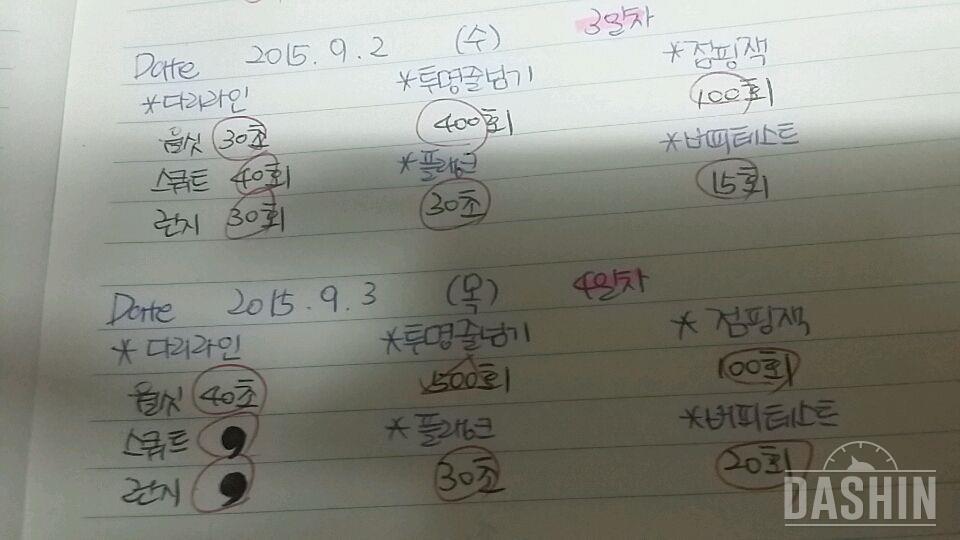 Date 2015.9.2 (수) 3일차
*다리라인 *투명줄넘기 *점핑잭
월싯 30초 400회 100회
스쿼트 40회 *플랭크 *버피테스트
런지 30회 30초 15회
Date 2015.9.3 (목) 4일차
*다리라인 *투명줄넘기 *점핑잭
월싯 40초 500회 100회
스쿼트 , *플랭크 *버피테스트
런지 , 30초 20회
DASHIN